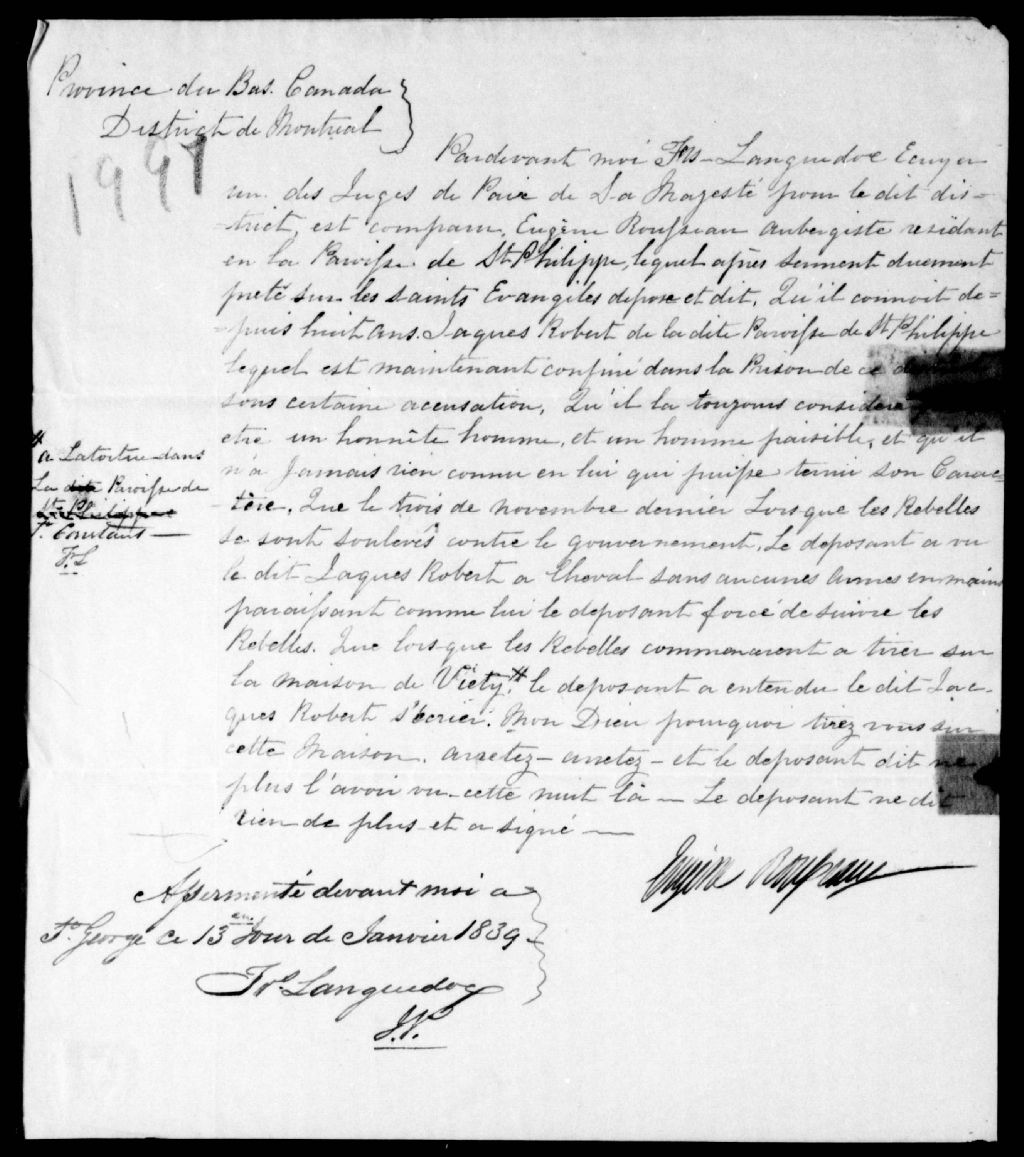 Province du Bas. Canada
District de Montreal
1997
Pardevant moi Frs Languedoc Ecuyer
un des Juges de Paix de Sa Majesté pour le dit dis=
=trict, est comparu, Eugène Rousseau aubergiste residant
en la Paroisse de St. Philippe, lequel après serment duement
preté sur les saints Evangiles depose et dit, Qu'il connoit de=
=puis huit ans Jaques Robert de la dite Paroisse de St Philippe
lequel est maintenant confiné dans la Prison de ce
sous certaine accusation, Qu'il la toujours considéré
etre un honnête homme, et un homme paisible, et qu'il
n'a Jamais rien connu en lui qui puisse ternir son Carac=
=tère. Que le trois de novembre dernier Lorsque les Rebelles
se sont soulevés contre le gouvernement, Le deposant a vu
le dit Jaques Robert a Cheval sans aucunes armes en mains
paraissant comme lui le deposant forcé de suivre les
Rebelles. Que lorsque les Rebelles commencerent a tirer sur
la maison de Vitty # le deposant a entendu le dit Jac=
ques Robert s'écrier. Mon Dieu pourquoi tirez vous sur
cette Maison. arretez - arretez - et le deposant dit ne
plus l'avoir vu cette nuit là — Le deposant ne dit
rien de plus et a signé —
# a Latortue dans
La dite Paroisse de
St. Philippe
St. Constant —
F. L
Eugène Rousseau
Assermenté devant moi a
St. George ce 13 eme Jour de Janvier 1839
Frs. Languedoc
J.P.